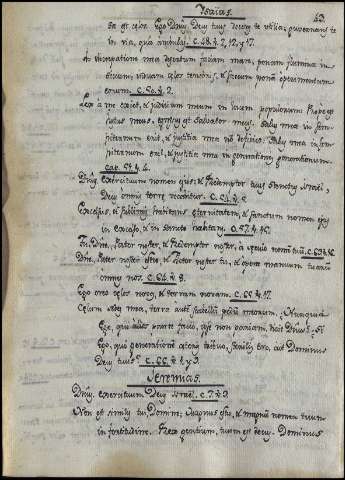 Isaias.
43
ta et eglos. Ego Dnus Deus tuus docens te utilia, gubernans te
in via, qua ambulas. c. 48. v. 2, 12, et 17.
In increpatione mea desertum faciam mare, ponam flumina in
siccum: induam cælos tenebris, et saccum ponam operimentum
eorum. c. 50. v. 2.
Lex a me exiet, et judicium meum in lucem populorum. Prope est
justus meus, egressus est salvator meus. Salus mea in sem-
piternum erit, et justitia mea non deficiet. Salus mea in sem-
piternum erit, et justitia mea in generationes generationum.
cap. 51. v. 4.
Dnus exercituum nomen ejus: et Redemptor tuus Sanctus Israël,
Deus omnis terræ vocabitur. c. 54. v. 5.
Excelsus, et sublimis habitans æternitatem, et sanctum nomen ejus
in excelso, et in sancto habitans. c. 57. v. 15.
Tu, Dne, Pater noster, et Redemptor noster, a sæculo nomen tuum. c. 63. v. 16.
Dne, Pater noster es tu, et Fictor noster tu, et opera manuum tuarum
omnes nos. c. 64. v. 8.
Ego creo cælos novos, et terram novam. c. 65. v. 17.
Cælum sedes mea, terra autem scabellum pedum meorum. Numquid
Ego, qui alios parere facio, ipse non pariam, dicit Dnus? Si
Ego, qui generationem ceteris tribuo, sterilis ero, ait Dominus
Deus tuus? c. 66. v. 1, et 9.
Jeremias.
Dnus exercituum Deus Israël. c. 7. v. 3.
Non est similis tui, Domine: Magnus es tu, et magnum nomen tuum
in fortitudine. Rex gentium, tuum est decus. Dominus